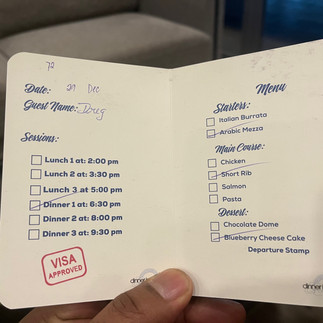 72
Date: 29 Dec
Guest Name: Doug
Sessions:
Lunch 1 at: 2:00 pm
Lunch 2 at: 3:30 pm
Lunch 3 at 5:00 pm
Dinner 1 at: 6:30 pm
Dinner 2 at: 8:00 pm
Dinner 3 at: 9:30 pm
VISA
APPROVED
Menu
Starters:
Italian Burrata
Arabic Mezza
Main Course:
Chicken
Short Rib
Salmon
Pasta
Dessert:
Chocolate Dome
Blueberry Cheese Cake
Departure Stamp